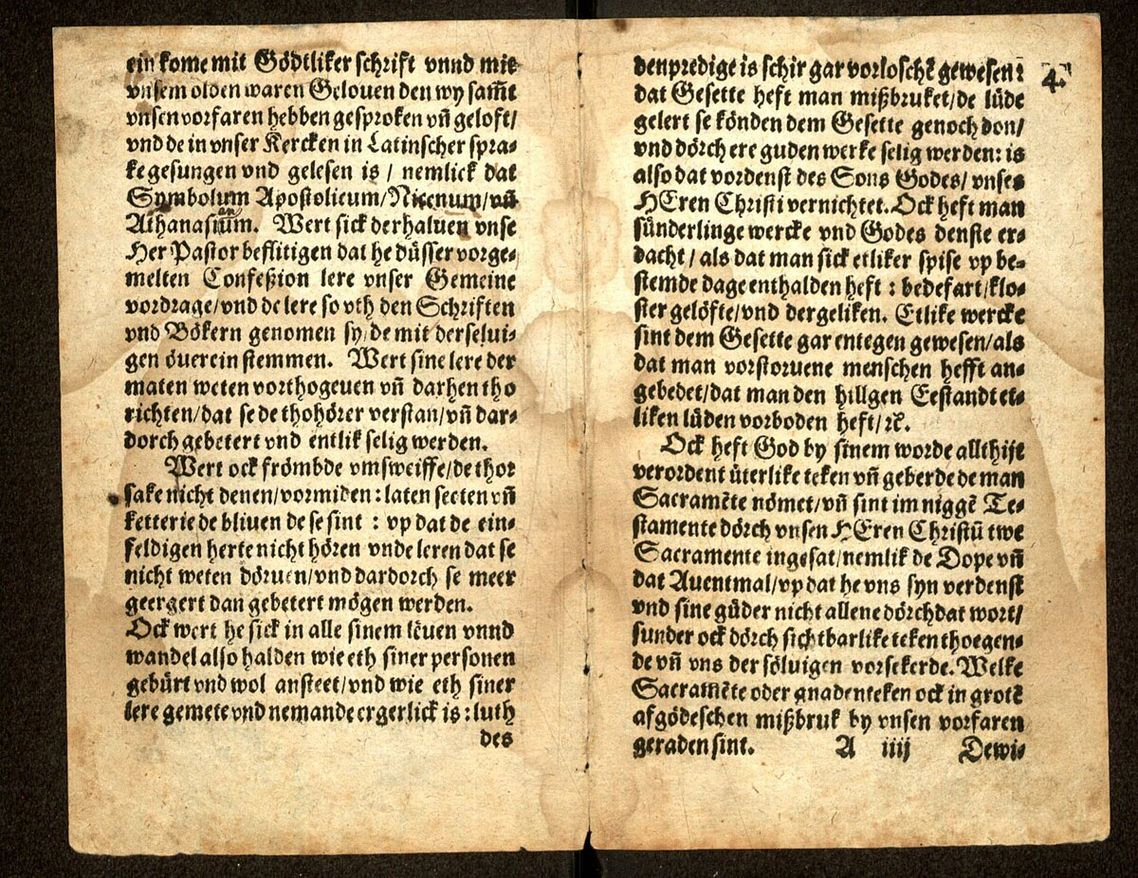 ein kome mit Gödtliker schrift vnnd mit
vnsem olden waren Gelouen den wy sam̃t
vnsen vorfaren hebben gesproken vñ geloft/
vnd de in vnser Kercken in Latinscher spra⸗
ke gesungen vnd gelesen is / nemlick dat
Symbolum Apostolicum/Nicenum/vñ
Athanasium. Wert sick derhaluen vnse
Her Pastor beflitigen dat he düsser vorge⸗
melten Confeßion lere vnser Gemeine
vordrage/vnd de lere so vth den Schriften
vnd Bökern genomen sy/de mit derselui⸗
gen öuerein stemmen. Wert sine lere der
maten weten vorthogeuen vñ darhen tho
richten/dat se de thohörer verstan/vñ dar⸗
dorch gebetert vnd entlik selig werden.
Wert ock frömbde vmsweiffe/de thor
sake nicht denen/vormiden: laten secten vñ
ketterie de bliuen de se sint : vp dat de ein⸗
feldigen herte nicht hören vnde leren dat se
nicht weten döruen/vnd dardorch se meer
geergert dan gebetert mögen werden.
Ock wert he sick in alle sinem lëuen vnnd
wandel also halden wie eth siner personen
gebürt vnd wol ansteet/vnd wie eth siner
lere gemete vnd nemande ergerlick is: luth
des
den predige is schir gar vorloschẽ gewesen: 4.
dat Gesette heft man mißbruket/de lüde
gelert se könden dem Gesette genoch don/
vnd dörch ere guden werke selig werden: is
also dat vordenst des Sons Godes/ vnses
HEren Christi vernichtet. Ock heft man
sünderlinge wercke vnd Godes denste er⸗
dacht / als dat man sick etliker spise vp be⸗
stemde dage enthalden heft : bedefart/klo⸗
ster gelöfte/vnd dergeliken. Etlike wercke
sint dem Gesette gar entegen gewesen/als
dat man vorstoruene menschen hefft an⸗
gebedet/dat man den hillgen Eestandt et⸗
liken lüden vorboden heft/ ꝛc̃.
Ock heft God by sinem worde allthijt
verordent üterlike teken vñ geberde de man
Sacramẽte nömet/vñ sint im niggẽ Te⸗
stamente dörch vnsen HEren Christũ twe
Sacramente ingesat/nemlik de Dope vñ
dat Auentmal/vp dat he vns syn verdenst
vnd sine güder nicht allene dörch dat wort/
sunder ock dörch sichtbarlike teken thoegen⸗
de vñ vns der söluigen vorsekerde. Welke
Sacramẽte oder gnadenteken ock in grotẽ
afgödeschen mißbruk by vnsen vorfaren
geraden sint. A iiij Dewi⸗